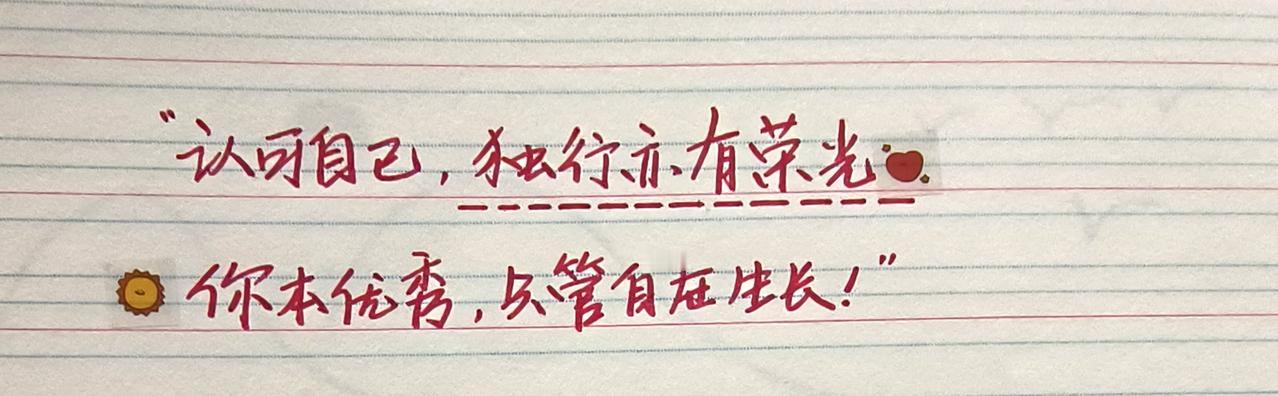 “认可自己，独行亦有荣光
你本优秀，只管自在生长！”